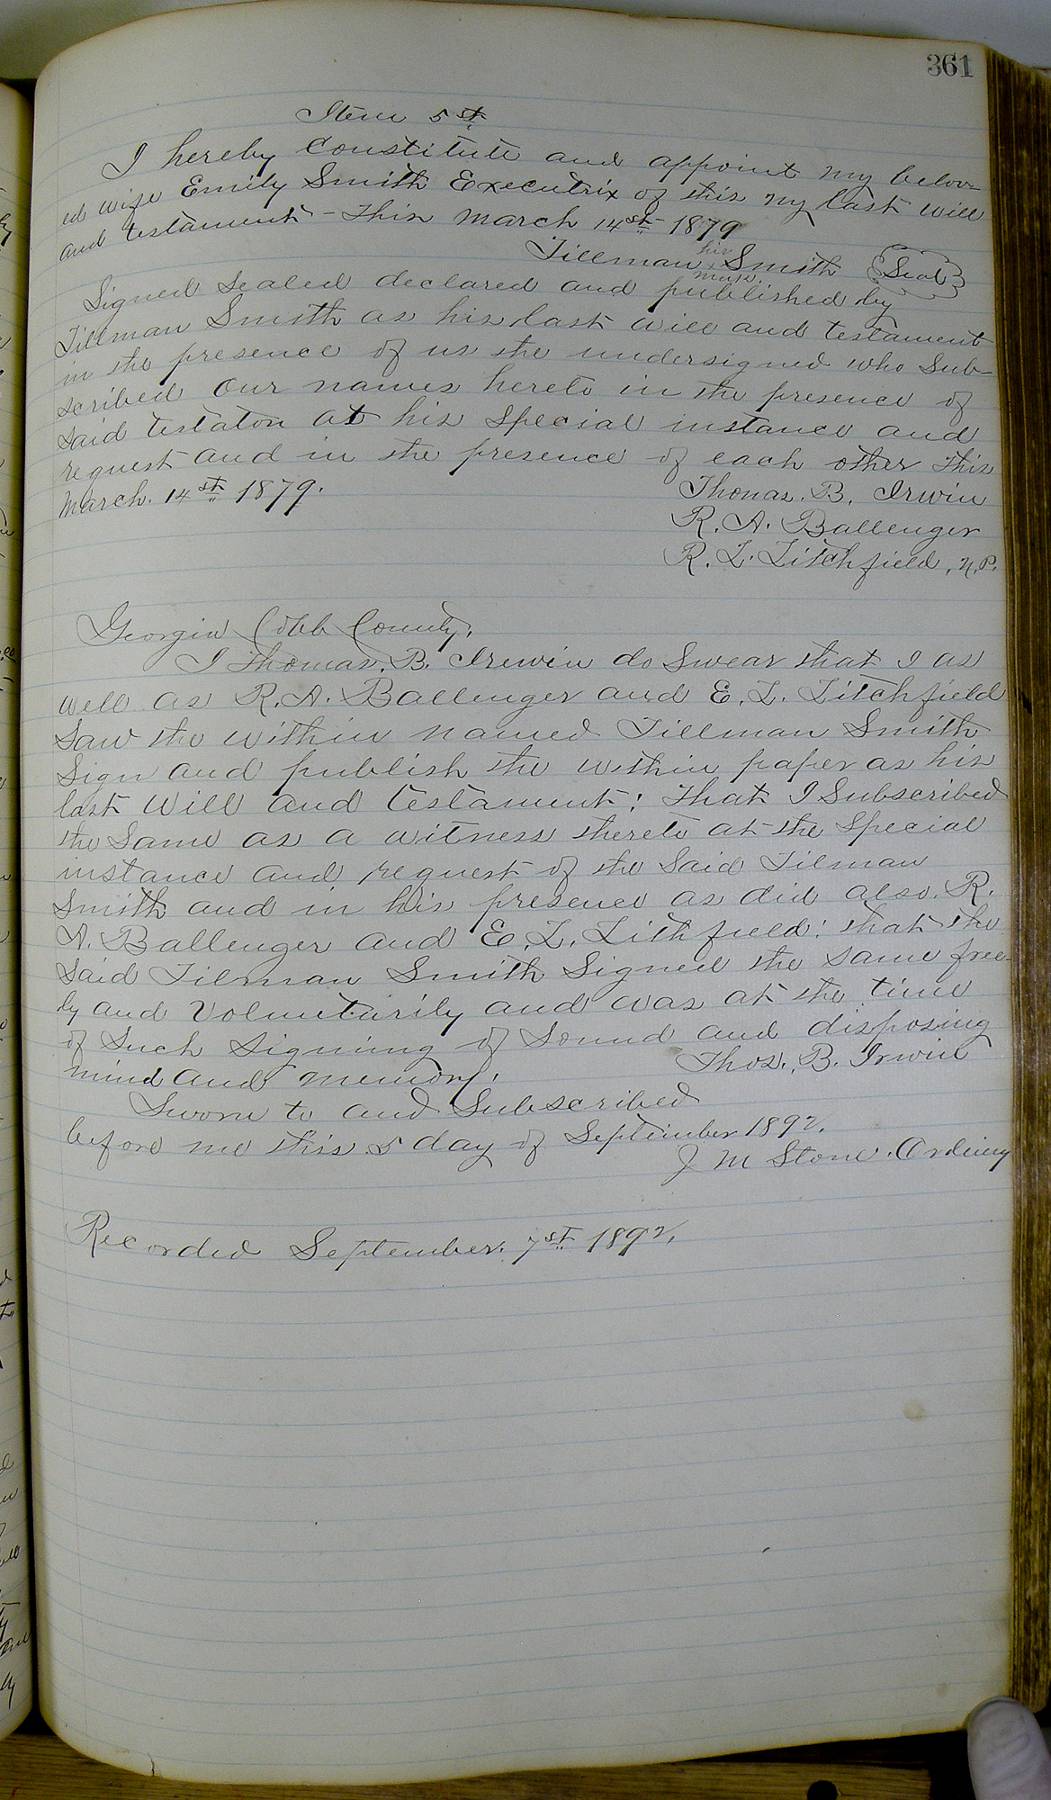 361
Item 5st
I hereby constitute and appoint my belov-
ed wife Emily Smith Executrix of this my last will
and testament - This March 14st 1879
his
Tillman Smith Seal
mark
Signed Sealed declared and published by
Tillman Smith as his last will and testament
in the presence of us the undersigned who Sub-
scribed our names hereto in the presence of
Said testator at his Special instance and
request and in the presence of each other this
March. 14st 1879.
Thomas. B. Irwin
R. A. Ballenger
R. L. Litchfield, N.P.
Georgia Cobb County,
I Thomas. B. Irwin do Swear that I as
well as R. A. Ballenger and E. L. Litchfield
Saw the within named Tillman Smith
Sign and publish the within paper as his
last Will and testament; that I Subscribed
the Same as a witness thereto at the Special
instance and request of the Said Tilman
Smith and in his presence as did also R.
A. Ballenger and E. L. Lithfield: that the
Said Tilman Smith Signed the same free-
ly and Voluntarily and was at the time
of Such Signing of Sound and disposing
mind and memory.
Thos. B. Irwin
Sworn to and Subscribed
before me this 5 day of September 1892.
J M Stone. Ordinary
Recorded September. 7st 1892,